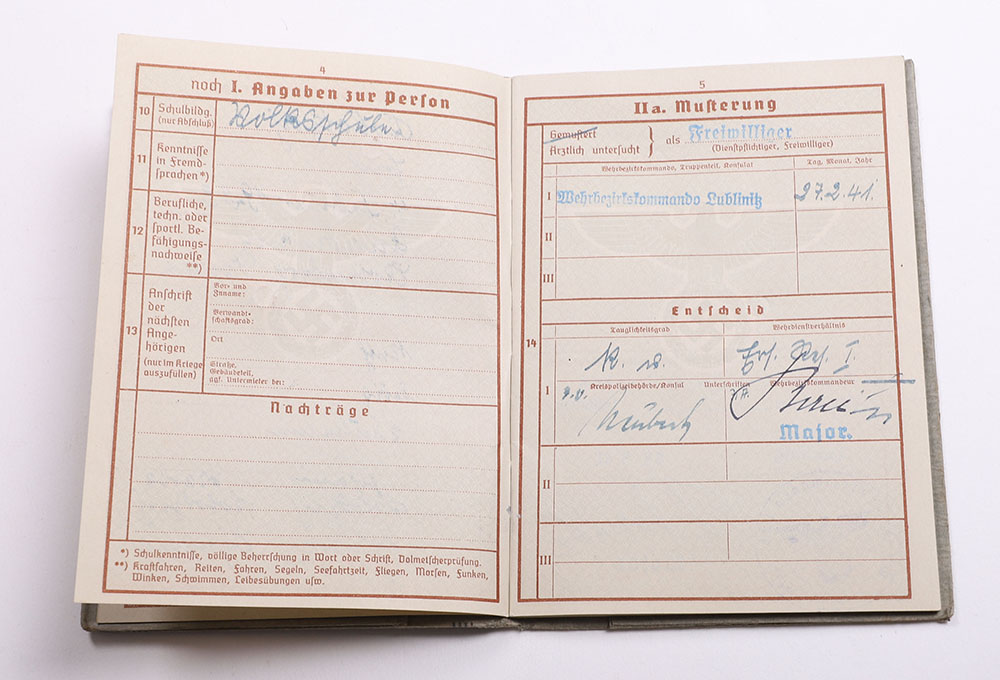 4
noch I. Angaben zur Person
10
Schulbildg.
(nur Abschluß)
Volksschule
11
Kenntnisse
in Fremd-
sprachen*)
12
Berufliche,
techn. oder
sportl. Be-
fähigungs-
nachweise
**)
13
Anschrift
der
nächsten
Ange-
hörigen
(nur im Kriege
auszufüllen)
Vor- und
Zuname:
Verwandt-
schaftsgrad:
Ort
Straße,
Gebäudeteil,
ggf. Untermieter bei:
Nachträge
*) Schulkenntnisse, völlige Beherrschung in Wort oder Schrift, Dolmetscherprüfung.
**) Kraftfahren, Reiten, Fahren, Segeln, Seefahrtzeit, Fliegen, Morsen, Funken,
Winken, Schwimmen, Leibesübungen usw.
5
IIa. Musterung
Gemustert
Ärztlich untersucht
als Freiwilliger
(Dienstpflichtiger, Freiwilliger)
Wehrbezirkskommando, Truppenteil, Konsulat
Tag, Monat, Jahr
I
Wehrbezirkskommando Lublinitz
27.2.41.
II
III
Entscheid
14
Tauglichkeitsgrad
Wehrdienstverhältnis
k. v.
Ers. Res. I
I
Kreispolizeibehörde/Konsul
Unterschriften
Wehrbezirkskommandeur
Major.
II
III